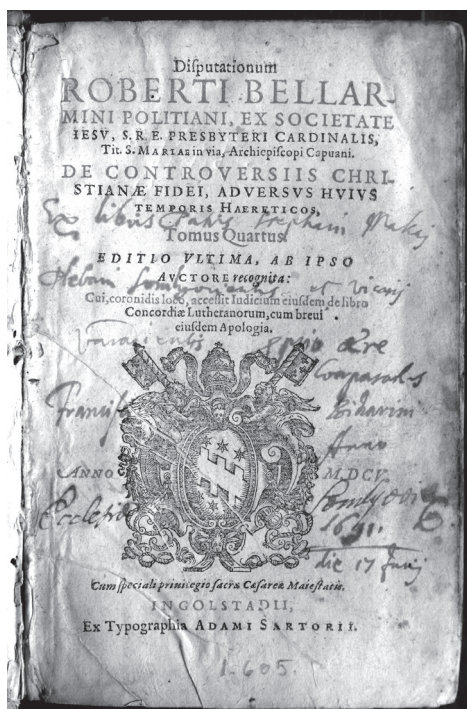 Disputationum
ROBERTI BELLAR-
MINI POLITIANI, EX SOCIETATE
IESV, S. R. E. PRESBYTERI CARDINALIS,
Tit. S. MARIAE in via, Archiepiscopi Capuani.
DE CONTROVERSIIS CHRI-
STIANÆ FIDEI, ADVERSVS HVIVS
TEMPORIS HAERETICOS,
Ex libris Stephani
Tomus Quartus.
EDITIO VLTIMA, AB IPSO
AVCTORE recognita:
et
Cui, coronidis loco, accessit Iudicium eiusdem de libro
Concordiæ Lutheranorum, cum breui
eiusdem Apologia.
ære
Anno
ANNO M.DCV.
1691.
die 17 Junij
Cum speciali priuilegio sacræ Cæsareæ Maiestatis.
INGOLSTADII,
Ex Typographia ADAMI SARTORII.
1.605.